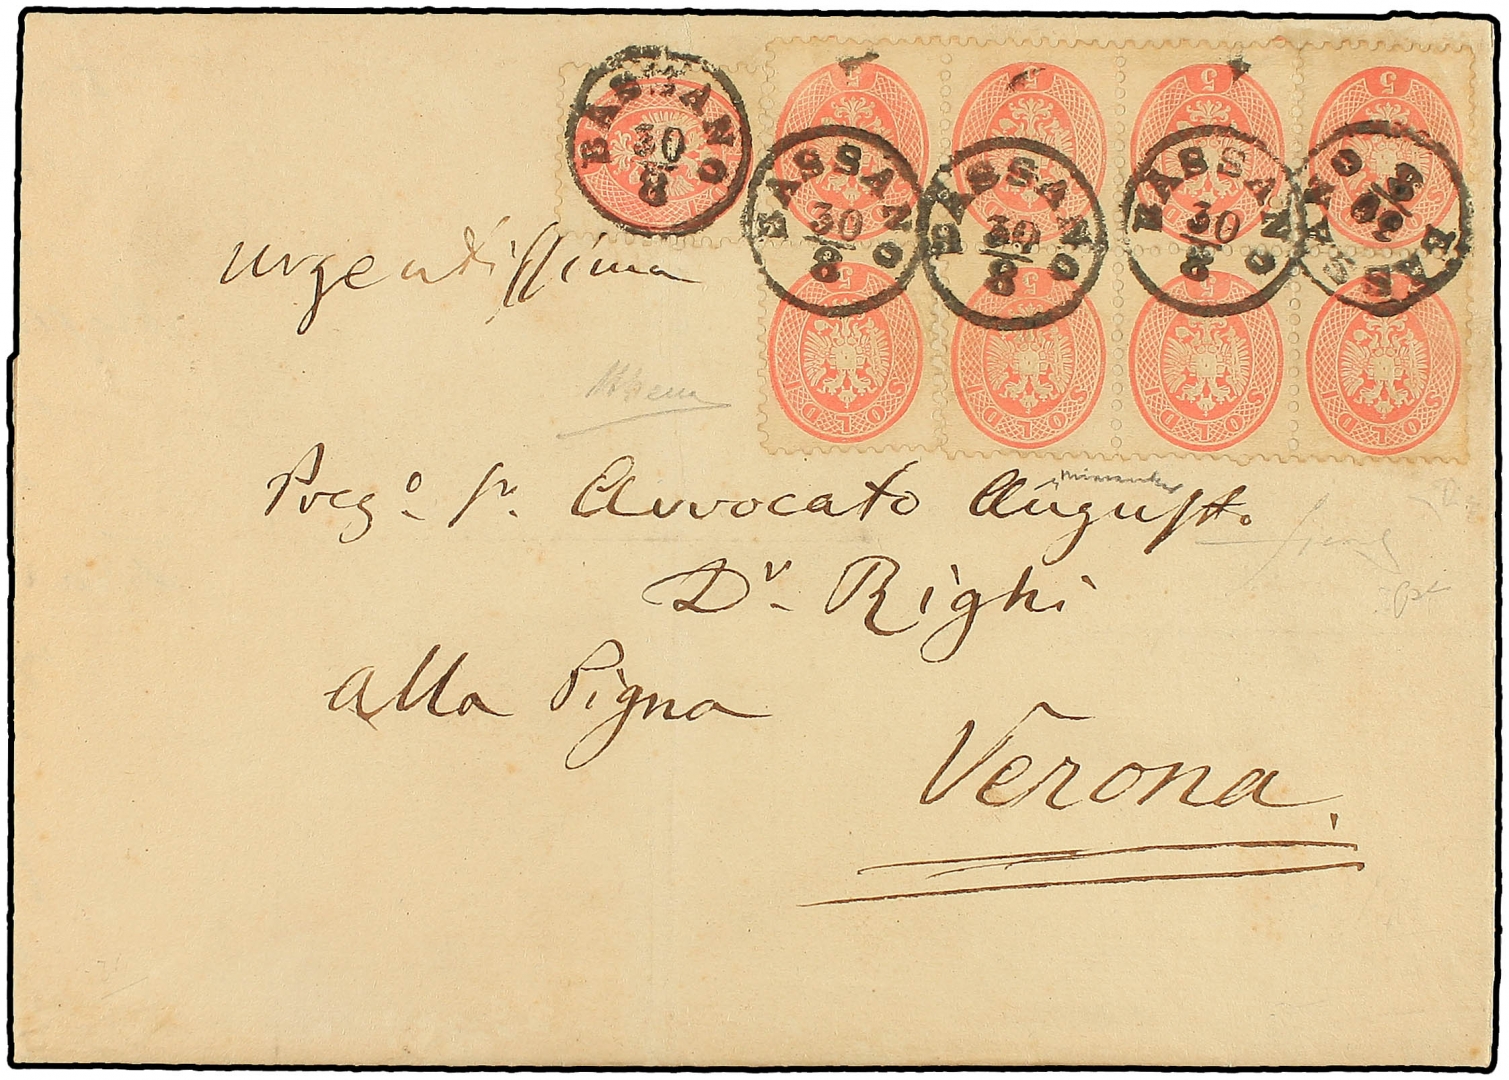 BASSANO
30
8
BASSANO
30
8
BASSANO
30
8
BASSANO
30
8
BASSANO
30
8
5
5
5
5
5 SOLDI
5 SOLDI
5 SOLDI
5 SOLDI
urgentissima
Preg.o Sr. Avvocato August.o
Dr. Righi
alla Pigna
Verona.